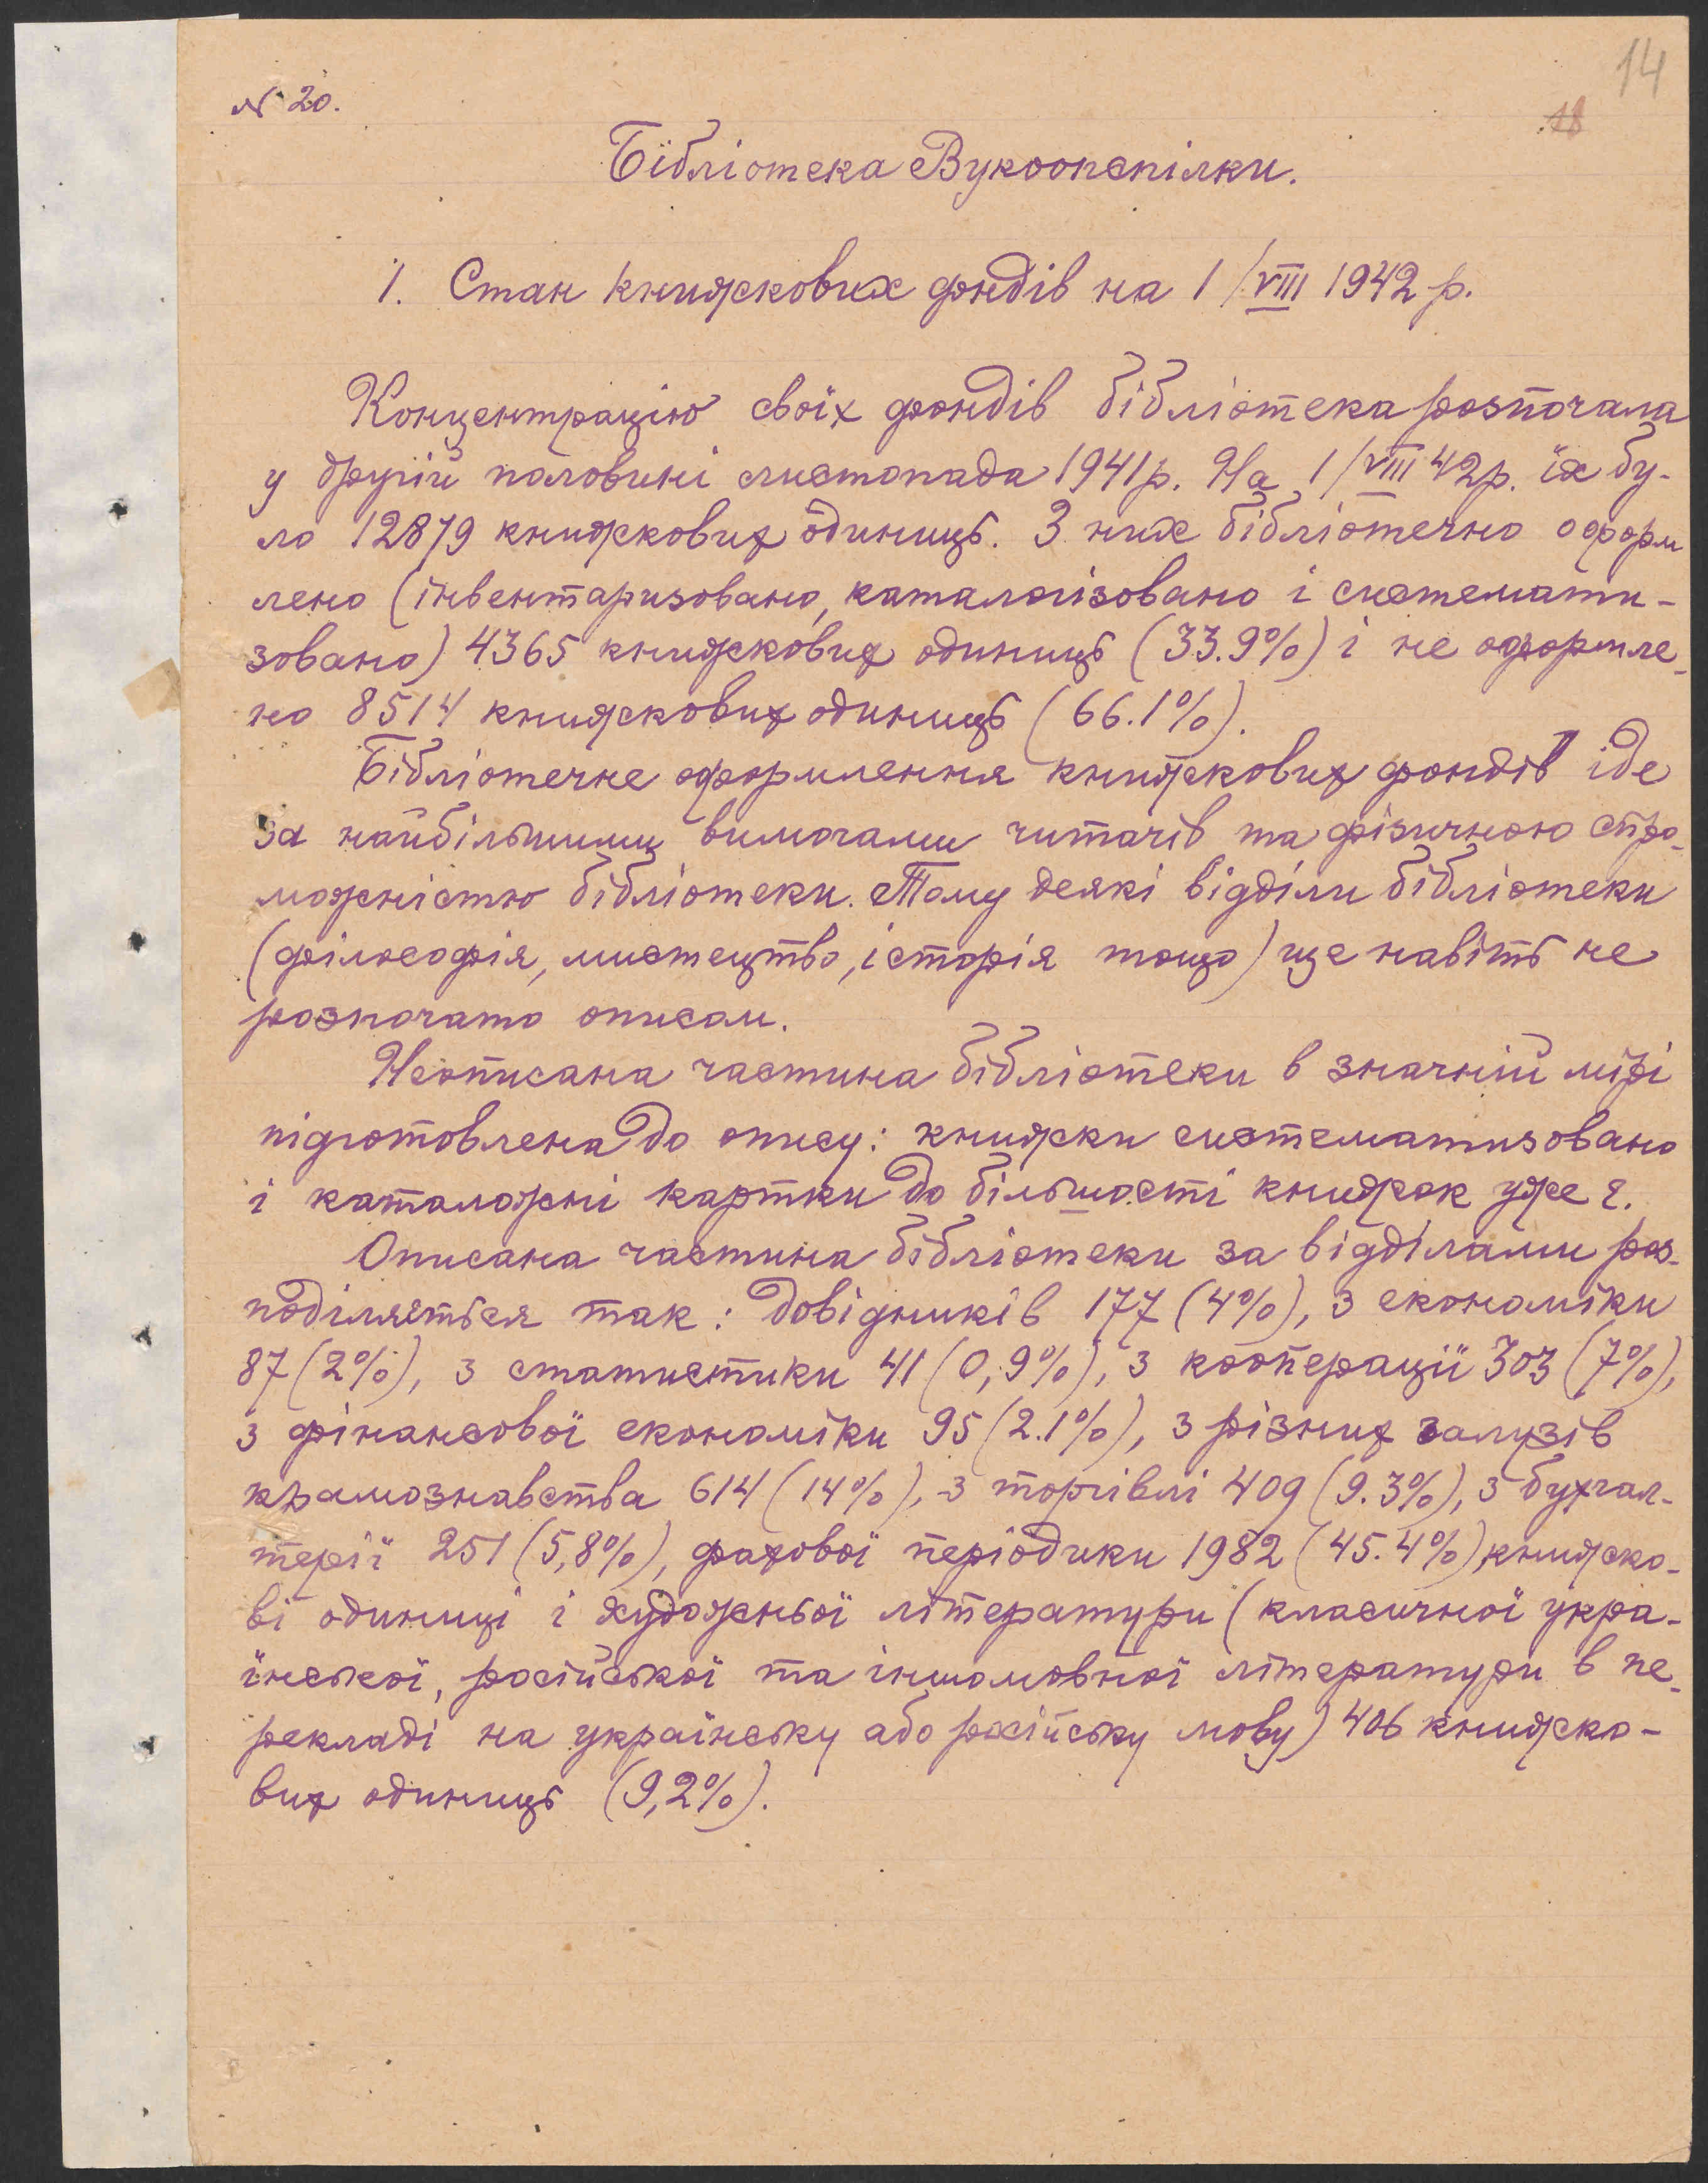 14
18
N 20.
Бібліотека Вукоопспілки.
1. Стан книжкових фондів на 1/VIII 1942 р.
Концентрацію своїх фондів бібліотека розпочала
у другій половині листопада 1941 р. На 1/VIII 42 р. їх бу-
ло 12879 книжкових одиниць. З них бібліотечно оформ
лено (інвентаризовано, каталогізовано і системати-
зовано) 4365 книжкових одиниць (33.9%) і не оформле-
но 8514 книжкових одиниць (66.1%).
Бібліотечне оформлення книжкових фондів іде
за найбільшими вимогами читачів та фізичною спро-
можністю бібліотеки. Тому деякі відділи бібліотеки
(філософія, мистецтво, історія тощо) ще навіть не
розпочато описом.
Неописана частина бібліотеки в значній мірі
підготовлена до опису: книжки систематизовано
і каталожні картки до більшості книжок уже є.
Описана частина бібліотеки за відділами роз-
поділяється так: довідників 177 (4%), з економіки
87 (2%), з статистики 41 (0,9%), з кооперації 303 (7%),
з фінансової економіки 95 (2.1%), з різних галузів
крамознавства 614 (14%), з торгівлі 409 (9.3%), з бухгал-
терії 251 (5,8%), фахової періодики 1982 (45.4%) книжко-
ві одиниці і художньої літератури (класичної укра-
їнської, російської та іншомовної літератури в пе-
рекладі на українську або російську мову) 406 книжко-
вих одиниць (9,2%).